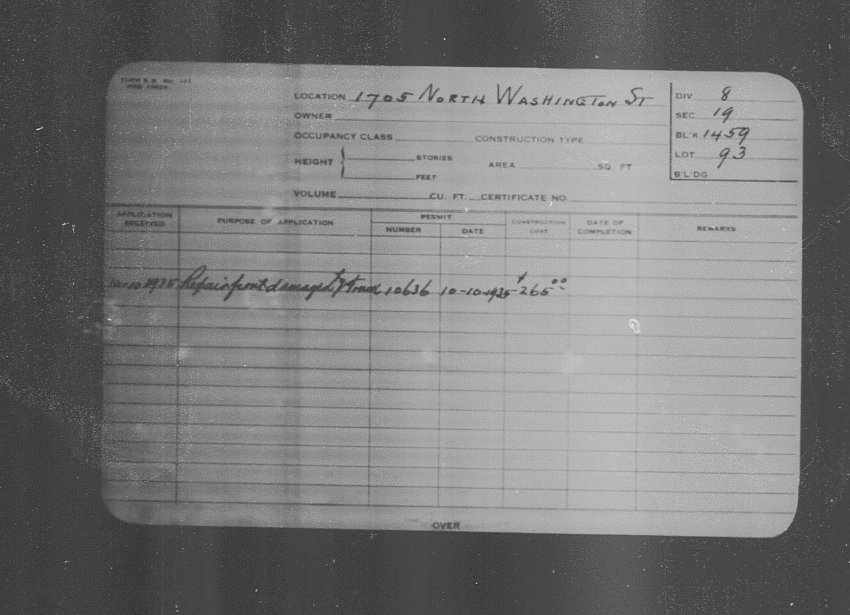 FORM B.B. No.
LOCATION 1705 NORTH WASHINGTON ST
OWNER
OCCUPANCY CLASS CONSTRUCTION TYPE
HEIGHT STORIES AREA SQ. FT
FEET
VOLUME CU. FT. CERTIFICATE NO.
DIV. 8
SEC. 19
BL'K 1459
LOT 93
B'L'DG
APPLICATION RECEIVED PURPOSE OF APPLICATION PERMIT NUMBER DATE CONSTRUCTION COST DATE OF COMPLETION REMARKS
10 1935 Repair front damaged by 10636 10-10-1935 265.00
OVER